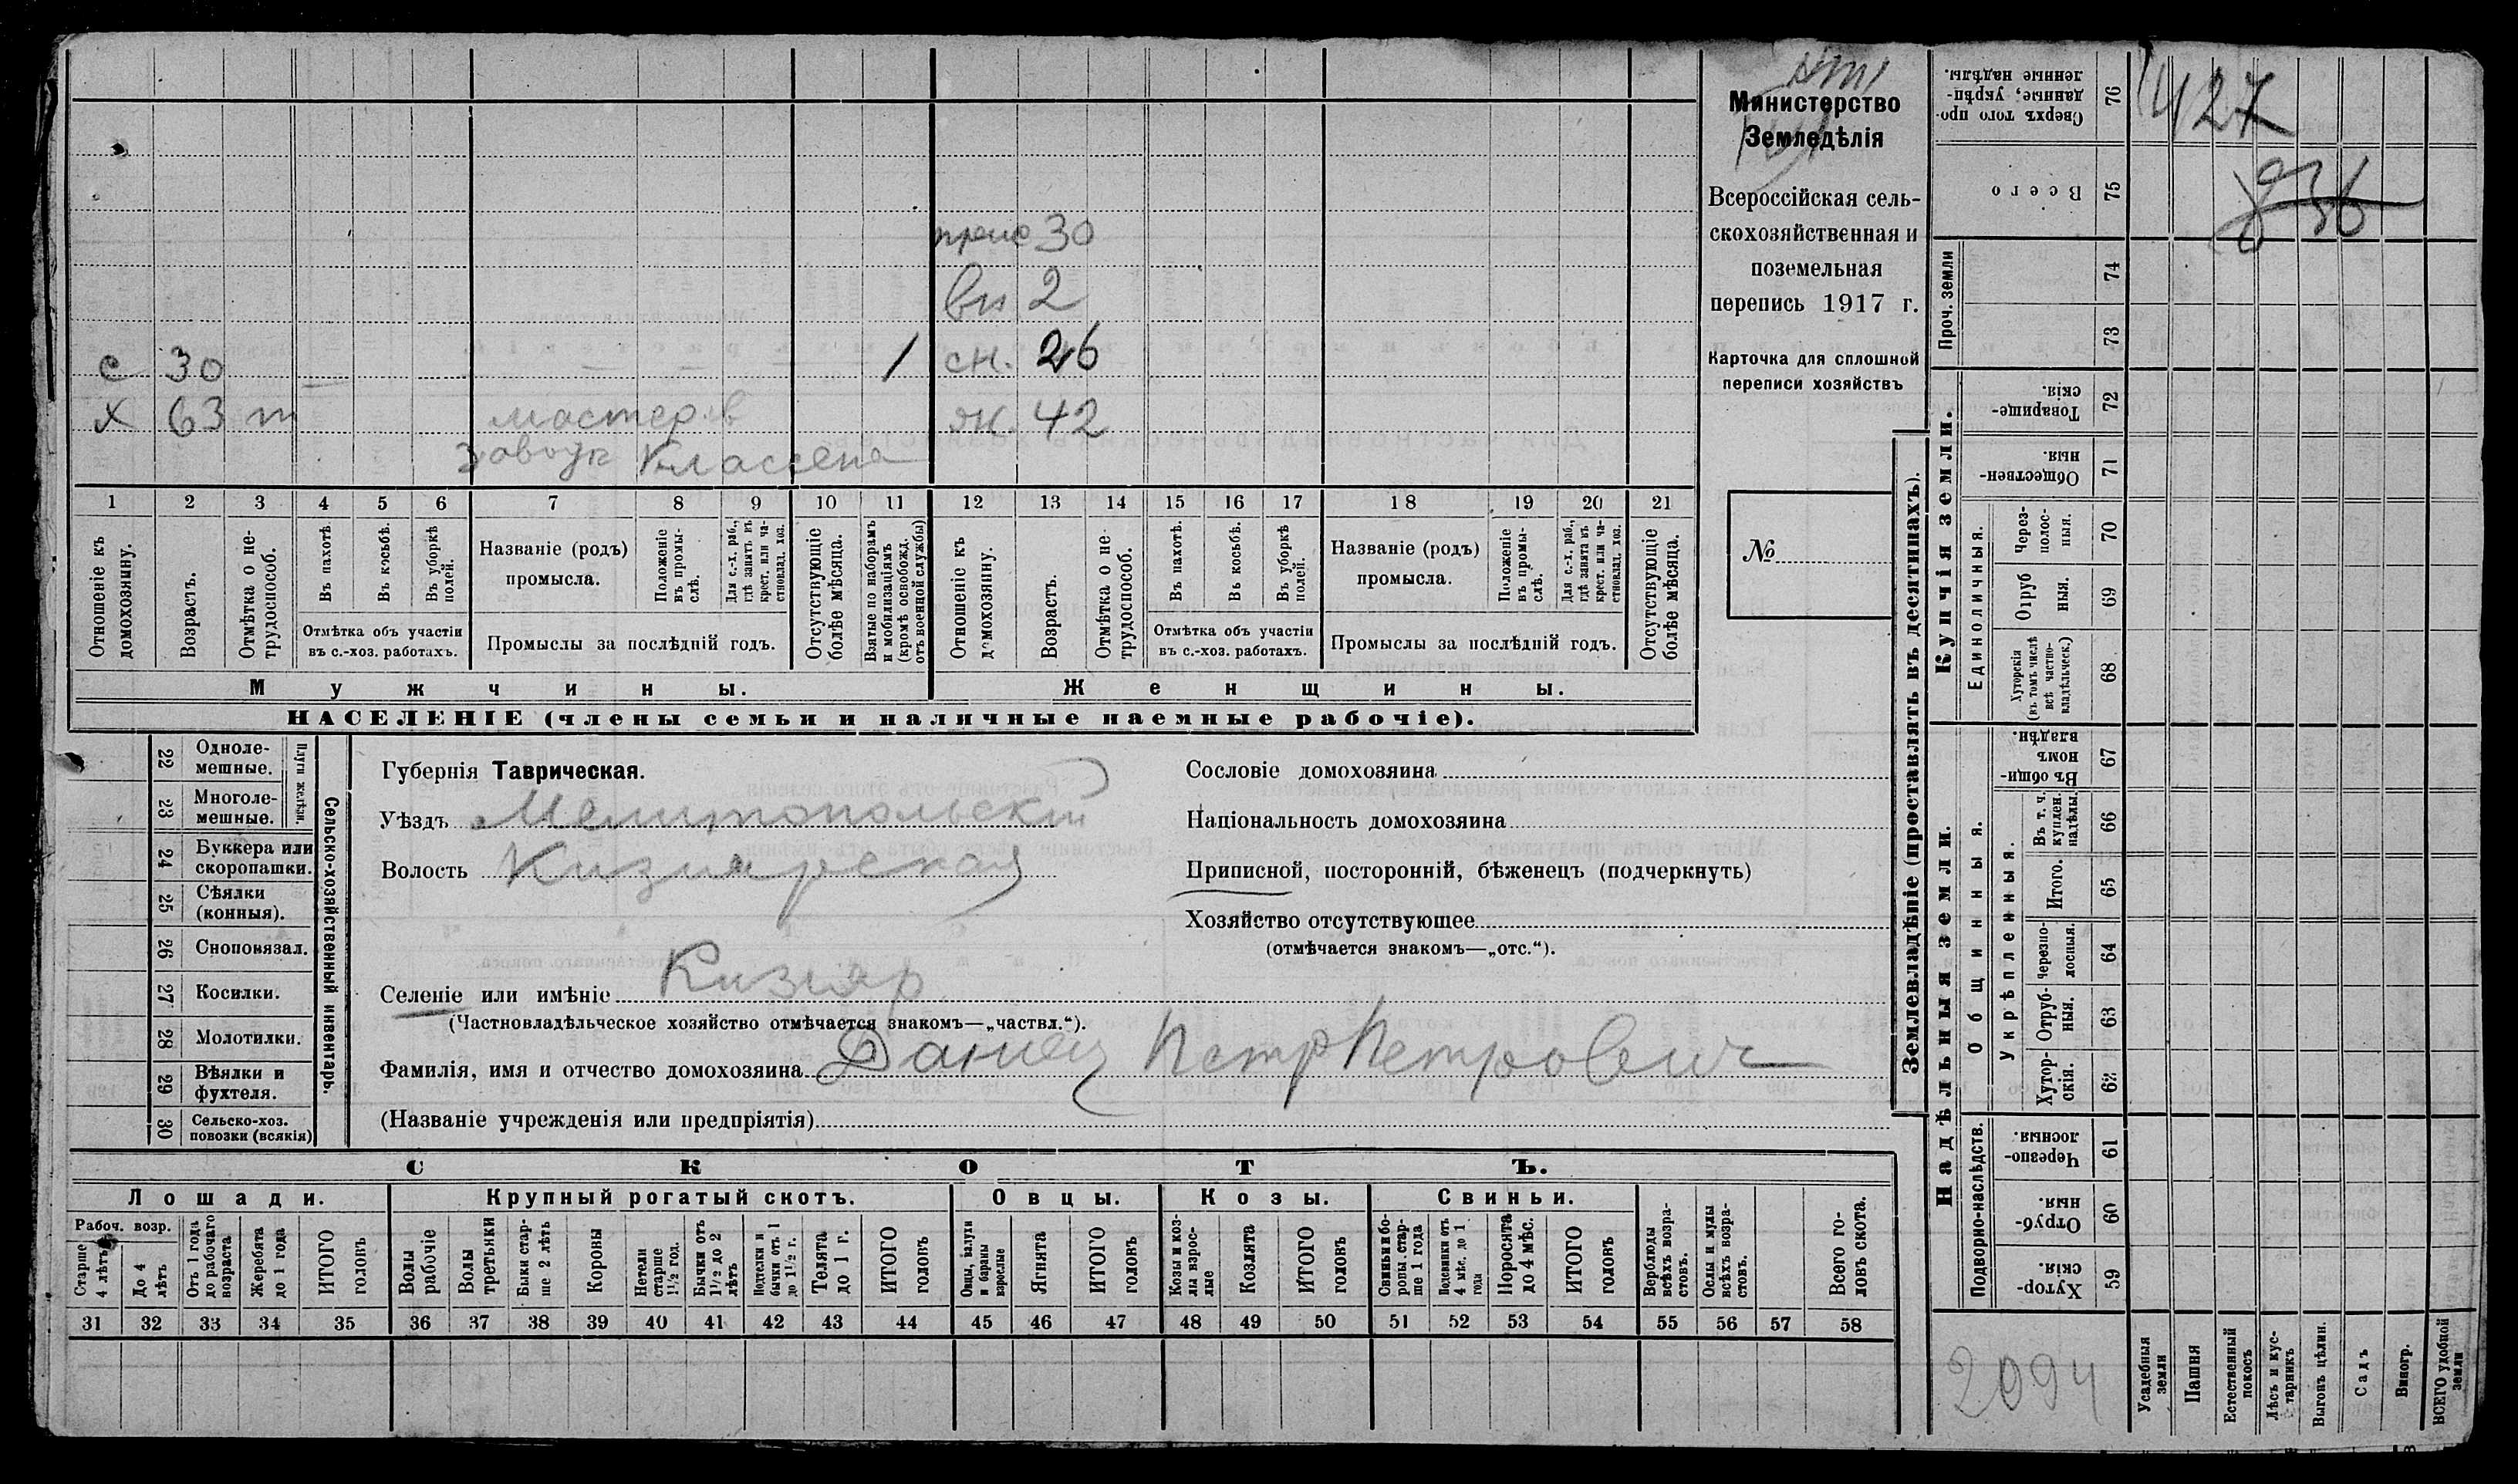 Министерство
Земледѣлія
Всероссійская сель-
скохозяйственная и
поземельная
перепись 1917 г.
Карточка для сплошной
переписи хозяйствъ
№
30
2
с 30 1 сн. 26
х 63 т мастер в ж. 42
Классена
1 2 3 4 5 6 7 8 9 10 11 12 13 14 15 16 17 18 19 20 21
Отношеніе къ домохозяину.
Возрастъ.
Отмѣтка о не-трудоспособ.
Въ пахотѣ.
Въ косьбѣ.
Въ уборкѣ полей.
Отмѣтка объ участіи
въ с.-хоз. работахъ.
Названіе (родъ)
промысла.
Положеніе въ промы-слѣ.
Для с.-х. раб., гдѣ занятъ въ крест. или ча-стновлад. хоз.
Промыслы за послѣдній годъ.
Отсутствующіе болѣе мѣсяца.
Взятые по наборамъ и мобилизаціямъ (кромѣ освобожд. отъ военной службы)
Отношеніе къ домохозяину.
Возрастъ.
Отмѣтка о не-трудоспособ.
Въ пахотѣ.
Въ косьбѣ.
Въ уборкѣ полей.
Отмѣтка объ участіи
въ с.-хоз. работахъ.
Названіе (родъ)
промысла.
Положеніе въ промы-слѣ.
Для с.-х. раб., гдѣ занята въ крест. или ча-стновлад. хоз.
Промыслы за послѣдній годъ.
Отсутствующіе болѣе мѣсяца.
Мужчины.
Женщины.
НАСЕЛЕНІЕ (члены семьи и наличные наемные рабочіе).
22 Одноле-мешные.
23 Многоле-мешные.
Плуги желѣзн.
24 Буккера или скоропашки.
25 Сѣялки (конныя).
26 Сноповязал.
27 Косилки.
28 Молотилки.
29 Вѣялки и фухтеля.
30 Сельско-хоз. повозки (всякія)
Сельско-хозяйственный инвентарь.
Губернія Таврическая.
Уѣздъ Мелитопольскій
Волость Кизиярская
Селеніе или имѣніе Кизияр
(Частновладѣльческое хозяйство отмѣчается знакомъ—„частвл.“).
Фамилія, имя и отчество домохозяина Даниец Петр Петрович
(Названіе учрежденія или предпріятія)
Сословіе домохозяина
Національность домохозяина
Приписной, посторонній, бѣженецъ (подчеркнуть)
Хозяйство отсутствующее
(отмѣчается знакомъ—„отс.“).
СКОТЪ.
Лошади.
Крупный рогатый скотъ.
Овцы.
Козы.
Свиньи.
Рабоч. возр.
Старше 4 лѣтъ
До 4 лѣтъ
Отъ 1 года до рабочаго возраста
Жеребята до 1 года
ИТОГО головъ
Волы рабочіе
Волы третьяки
Быки стар-ше 2 лѣтъ
Коровы
Нетели старше 1½ год.
Бычки отъ 1½ до 2 лѣтъ
Подтелки и бычки отъ 1 до 1½ г.
Телята до 1 г.
ИТОГО головъ
Овцы, валухи и бараны взрослые
Ягнята
ИТОГО головъ
Козы и коз-лы взрос-лые
Козлята
ИТОГО головъ
Свиньи и бо-ровы стар-ше 1 года
Подсвинки отъ 4 мѣс. до 1 года
Поросята до 4 мѣс.
ИТОГО головъ
Верблюды всѣхъ возра-стовъ.
Ослы и мулы всѣхъ возра-стовъ.
Всего го-ловъ скота.
31 32 33 34 35 36 37 38 39 40 41 42 43 44 45 46 47 48 49 50 51 52 53 54 55 56 57 58
Землевладѣніе (проставлять въ десятинахъ).
Надѣльныя земли.
Купчія земли.
Проч. земли
76 Сверхъ того про-данные, укрѣп-ленные надѣлы.
427
75 Всего
936
74
73
72 Товарище-скія.
71 Обществен-ныя.
Единоличныя.
70 Через-полос-ныя.
69 Отруб ныя.
68 Хуторскія (въ томъ числѣ всѣ частно-владѣльческ.)
Общинныя.
67 Въ общи-номъ владѣн.
Укрѣпленныя.
66 Въ т. ч. куплен. надѣлы.
65 Итого.
64 Черезпо-лосныя.
63 Отруб-ныя.
62 Хутор-скія.
Подворно-наслѣдств.
61 Черезпо-лосныя.
60 Отруб-ныя.
59 Хутор-скія.
2094
Усадебныя земли
Пашня
Естественный покосъ
Лѣсъ и кус-тарникъ
Выгонъ цѣлин.
Садъ
Виногр.
ВСЕГО удобной земли